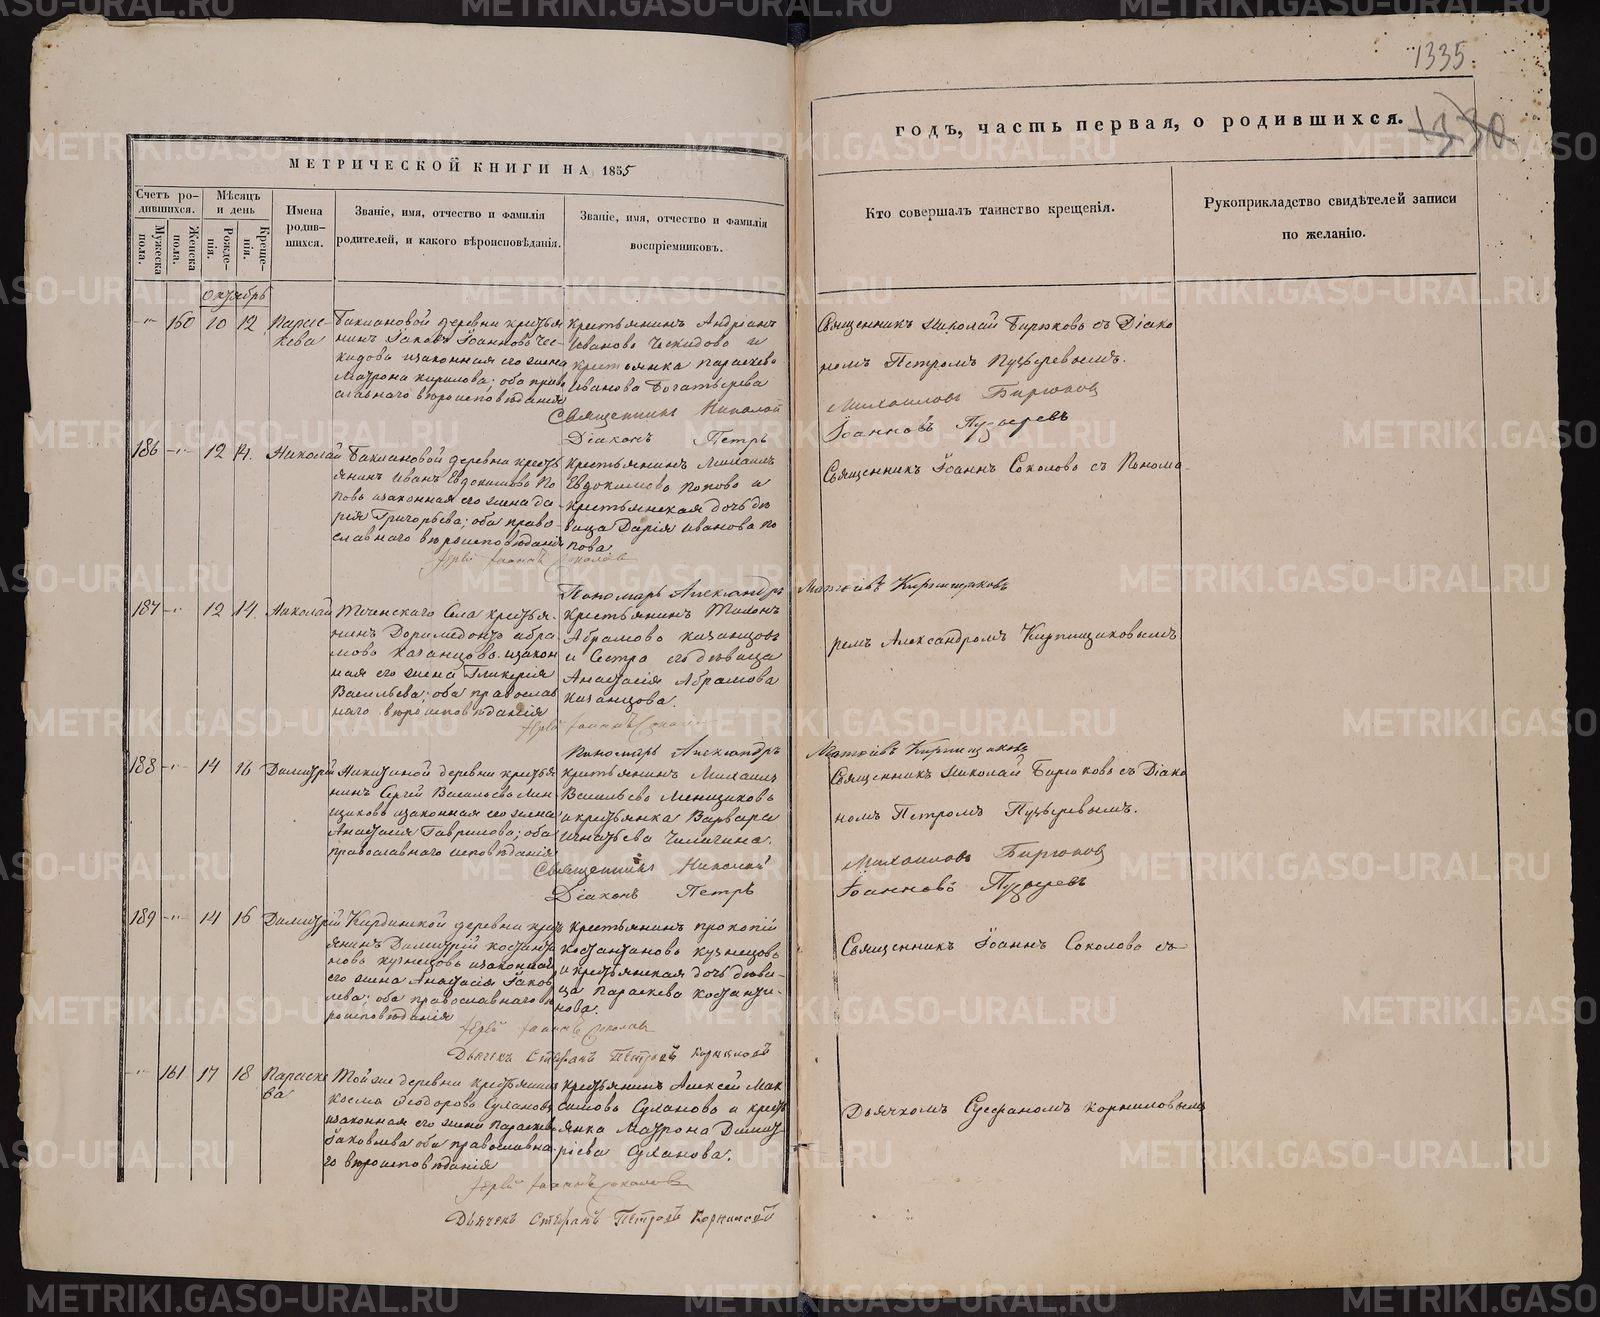 1335.
1330
МЕТРИЧЕСКОЙ КНИГИ НА 1855
годъ, часть первая, о родившихся.
Счетъ родившихся.
Мужеска пола.
Женска пола.
Мѣсяцъ и день
Рожденія.
Крещенія.
Имена родившихся.
Званіе, имя, отчество и фамилія
родителей, и какого вѣроисповѣданія.
Званіе, имя, отчество и фамилія
воспріемниковъ.
Кто совершалъ таинство крещенія.
Рукоприкладство свидѣтелей записи
по желанію.
Октябрь
160 10 12 Параскева
Баклановой деревни крестья
нинъ Іаковъ Іоанновъ Чес-
кидовъ и законная его жена
Матрона Кирилова; оба право
славнаго вѣроисповѣданія
Крестьянинъ Андріанъ
Ивановъ Ческидовъ и
крестьянка Параскева
Иванова Богатырева
Священникъ Николай Бирюковъ съ Діако
номъ Петромъ Пузыревымъ.
Священникъ Николай Михаиловъ Бирюков
Діаконъ Петръ Іоанновъ Пузыревъ
186 12 14. Николай
Баклановой деревни кресть
янинъ Иванъ Евдокимовъ По
повъ и законная его жена Да
рія Григорьева; оба право
славнаго вѣроисповѣданія
Крестьянинъ Михаилъ
Евдокимовъ Поповъ и
крестьянская дочь дѣ
вица Дарія Иванова По
пова.
Священникъ Іоаннъ Соколовъ съ Понома
Іерей Іоаннъ Соколовъ
Пономарь Александръ Матѳіевъ Кирпищиковъ
187 12 14. Николай
Теченскаго Села крестья-
нинъ Доримедонтъ Абра-
мовъ Казанцовъ и закон
ная его жена Гликерія
Васильева; оба православ
наго вѣроисповѣданія
Крестьянинъ Тихонъ
Абрамовъ Казанцовъ
и Сестра его дѣвица
Анастасія Абрамова
Казанцова.
ремъ Александромъ Кирпищиковымъ
Іерей Іоаннъ Соколовъ
Пономарь Александръ Матѳіевъ Кирпищиковъ
188 14 16 Димитрій
Никитиной деревни крестья
нинъ Сергій Васильевъ Мен
щиковъ и законная его жена
Анастасія Гаврилова; оба
православнаго исповѣданія
Крестьянинъ Михаилъ
Васильевъ Менщиковъ
и крестьянка Варвара
Игнатьева Чипигина.
Священникъ Николай Бирюковъ съ Діако
номъ Петромъ Пузыревымъ.
Священникъ Николай Михаиловъ Бирюков
Діаконъ Петръ Іоанновъ Пузыревъ
189 14 16 Димитрій
Кирдинской деревни крест
янинъ Димитрій Костянти
новъ Кузнецовъ и законная
его жена Анастасія Іаков
лева; оба православнаго вѣ
роисповѣданія
Крестьянинъ Прокопій
Костантиновъ Кузнецовъ
и крестьянская дочь дѣви-
ца Параскева Костанти-
нова.
Священникъ Іоаннъ Соколовъ съ
Іерей Іоаннъ Соколовъ
Дьячекъ Стефанъ Петровъ Корниловъ
161 17 18 Параскева
Той же деревни крестьянинъ
Косма Ѳеодоровъ Сулановъ
и законная его жена Параскева
Іаковлева оба православна
го вѣроисповѣданія
Крестьянинъ Алексей Мак
симовъ Сулановъ и кресть
янка Матрона Димит
ріева Суланова.
Дьячкомъ Стефаномъ Корниловымъ
Іерей Іоаннъ Соколовъ
Дьячекъ Стефанъ Петровъ Корниловъ
METRIKI.GASO-URAL.RU